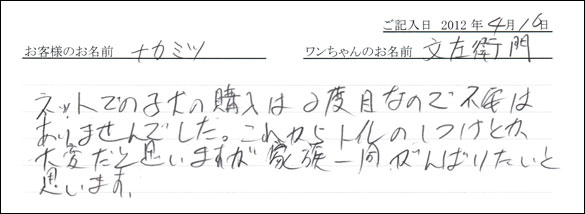 ご記入日 2012年4月16日
お客様のお名前 ナカミツ ワンちゃんのお名前 文左衛門
ネットでの子犬の購入は2度目なので不安は
ありませんでした。これからトイレのしつけとか
大変だと思いますが家族一同がんばりたいと
思います。